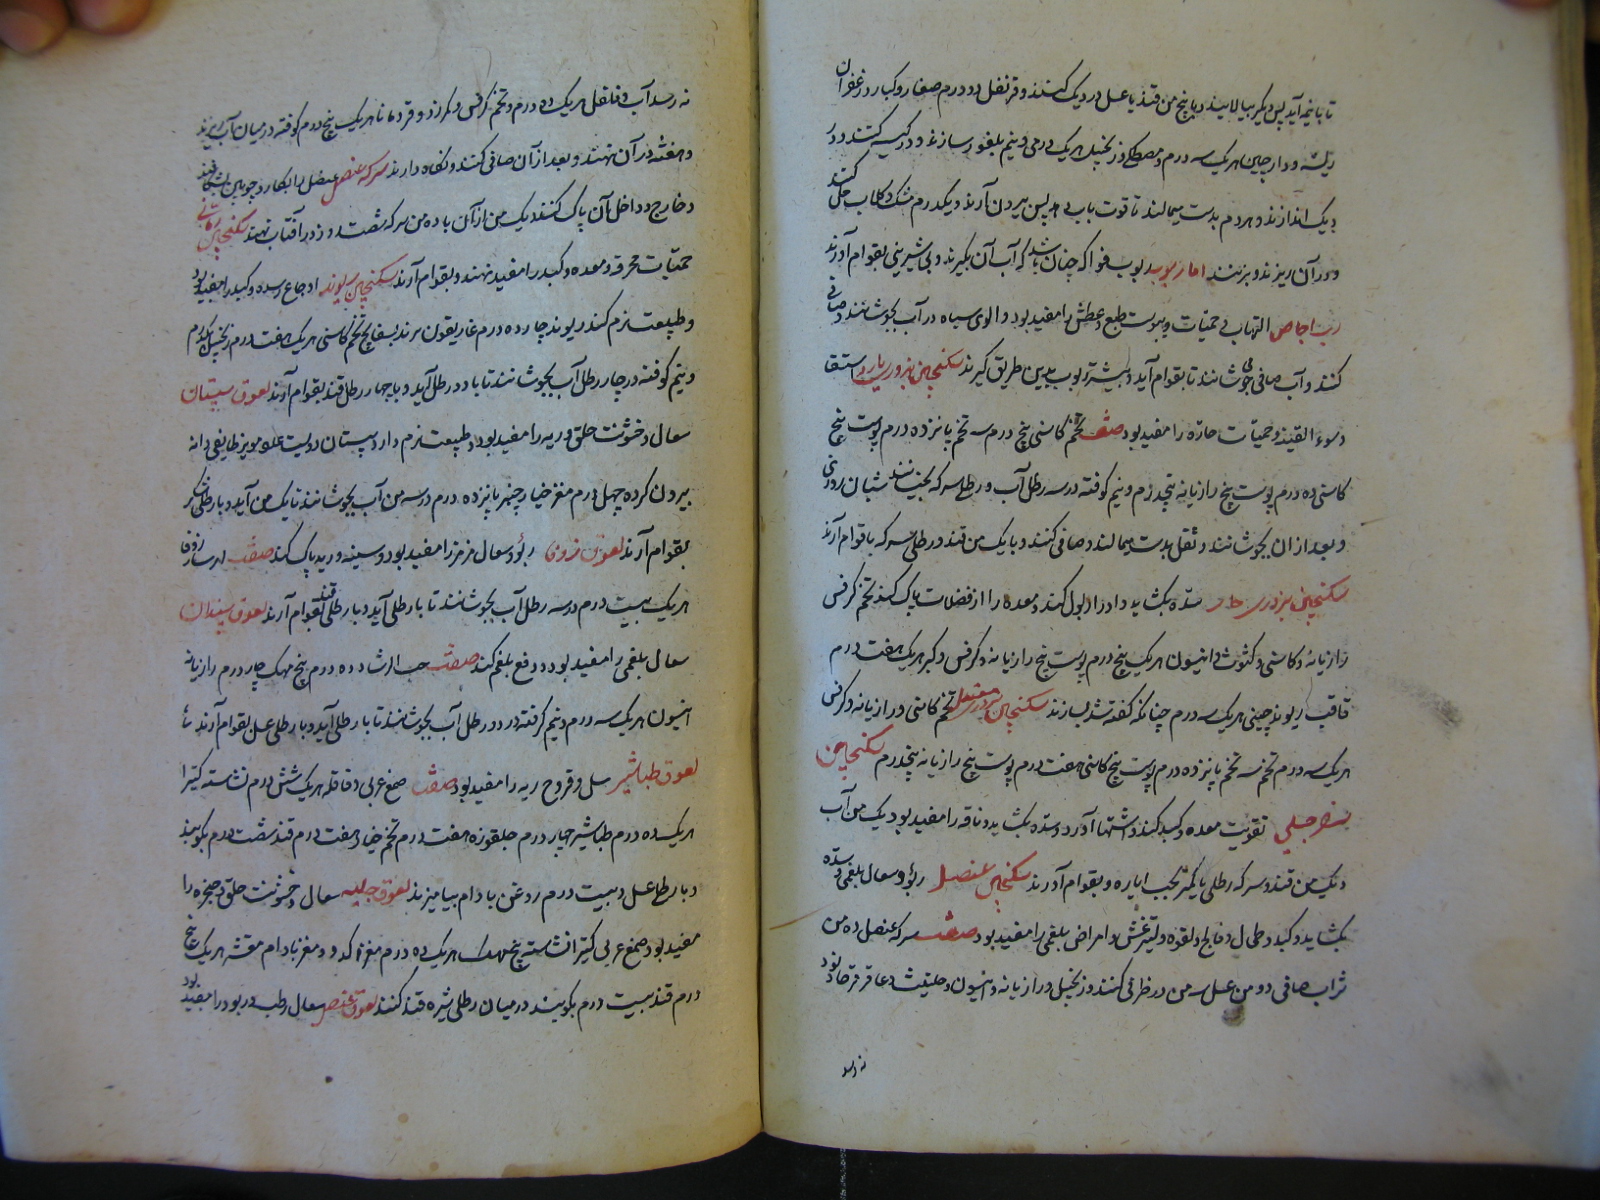 تا بنیمه آید پس دیگر بپالایند و با پنج من قند یا عسل در دیک کنند و قرنفل دو درم صغار و کبار و زعفران
ریشه و دارچین هریک سه درم و مصطکی و زنجبیل هریک درمی و نیم بلغور سازند و در کیسه کنند و در
دیک اندازند و هر دم بدست میمالند تا قوت باب دهد پس بیرون آرند و یکدرم مشک و کلاب حل کنند
و در آن ریزند و بزنند اما ربوب ربوب فواکه چنان باشد که آب آن بگیرند و بی شیرینی بقوام آورند
رب اجاص التهاب حمیات و یبوست طبع و عطش را مفید بود و الوی سیاه در آب بجوشانند و صافی
کنند و آب صافی جوشانند تا بقوام آید و بیشتر ربوب بدین طریق گیرند سکنجبین بزوری بارد استسقا
و سوء القنیه و حمیات حاره را مفید بود صفت تخم کاسنی پنج درم سه تخم پانزده درم پوست بیخ
کاسنی ده درم پوست بیخ رازیانه پنجدرم و نیم کوفته در سه رطل آب و رطلی سرکه بخیسانند شبان روزی
و بعد از ان بجوشانند و ثفل بدست بمالند و صافی کنند و با یک من قند و رطلی سرکه باقوام آرند
سکنجبین بزوری حار سده بکشاید و ادرار بول کند و معده را از فضلات پاک کند تخم کرفس
رازیانه و کاسنی و کثوث و انیسون هریک پنج درم پوست بیخ رازیانه و کرفس و کبر هریک هفت درم
ریوند چینی هریک سه درم چنانکه گفته شد بسازند سکنجبین بزوری معتدل تخم کاسنی و رازیانه و کرفس
هریک سه درم تخم سه تخم پانزده درم پوست بیخ کاسنی هفت درم پوست بیخ رازیانه پنجدرم سکنجبین
سفرجلی تقویت معده و کبد کند و اشتها آورد و سده بکشاید و ناقه را مفید بود یک من آب
و یک من قند و سرکه رطلی یا کمتر بحسب اراده و بقوام آورند سکنجبین عنصل ربو و سعال بلغمی و سده
بکشاید و کبد و طحال و فالج و لقوه و لیثرغس و امراض بلغمی را مفید بود صفت سرکه عنصل ده من
شراب صافی دو من عسل سه من در ظرفی کنند و زنجبیل و رازیانه و انیسون و حلتیت و عاقرقرحا
نه رسد
نه رسد آب و فلفل هریک دو درم و تخم کرفس و قردمانا هریک پنج درم کوفته در میان آب ریزند
و هفته در آن نهند و بعد از آن صافی کنند و نگاه دارند سرکه عنصل عنصل را بکارد چوبین بشکافند
و خارج و داخل آن پاک کنند و یک من از آن با ده من سرکه شصت روز در آفتاب نهند سکنجبین
حمیات محرقه و معده و کبد را مفید نهند و بقوام آرند سکنجبین ریوند اوجاع سده و کبد را مفید بود
و طبیعت نرم کند ریوند چارده درم غاریقون سرند بسفایج تخم کاسنی هریک هفت درم زنجبیل یکدرم
و نیم کوفته در چار رطل آب بجوشانند تا با دو رطل آید و با چهار رطل قند بقوام آرند لعوق سپستان
سعال و خشونت حلق و ریه را مفید بود و طبیعت نرم دارد سپستان دویست عدد مویز طایفی دانه
بیرون کرده چهل درم مغز خیار چنبر پانزده درم در سه من آب بجوشانند تا یک من آید و با رطلی شکر
بقوام آرند لعوق زوفا ربو و سعال مزمن را مفید بود و سینه و ریه پاک کند صفت زوفا
هریک بیست درم در سه رطل آب بجوشانند تا با رطلی آید و با رطلی قند بقوام آرند لعوق سپندان
سعال بلغمی را مفید بود و دفع بلغم کند صفت حب الرشاد ده درم بیخ مهک چار درم رازیانه
انیسون هریک سه درم و نیم کرفته در دو رطل آب بجوشانند تا با رطلی آید و با رطلی عسل بقوام آرند
لعوق طباشیر سل و قروح ریه را مفید بود صفت صمغ عربی و قاقله هریک شش درم نشاسته کتیرا
هریک ده درم طباشیر چهار درم جلغوزه هفت درم تخم خیار هفت درم قند شصت درم بکوبند
و با رطل عسل و بیست درم روغن بادام بیامیزند لعوق حلبه سعال و خشونت حلق و حنجره را
مفید بود صمغ عربی کتیرا نشاسته بیخ مهک هریک ده درم مغز کدو و مغز بادام مقشر هریک پنج
درم قند بیست درم بکوبند در میان رطلی شیره قند کنند لعوق عنصل سعال رطب و ربو را مفید بود